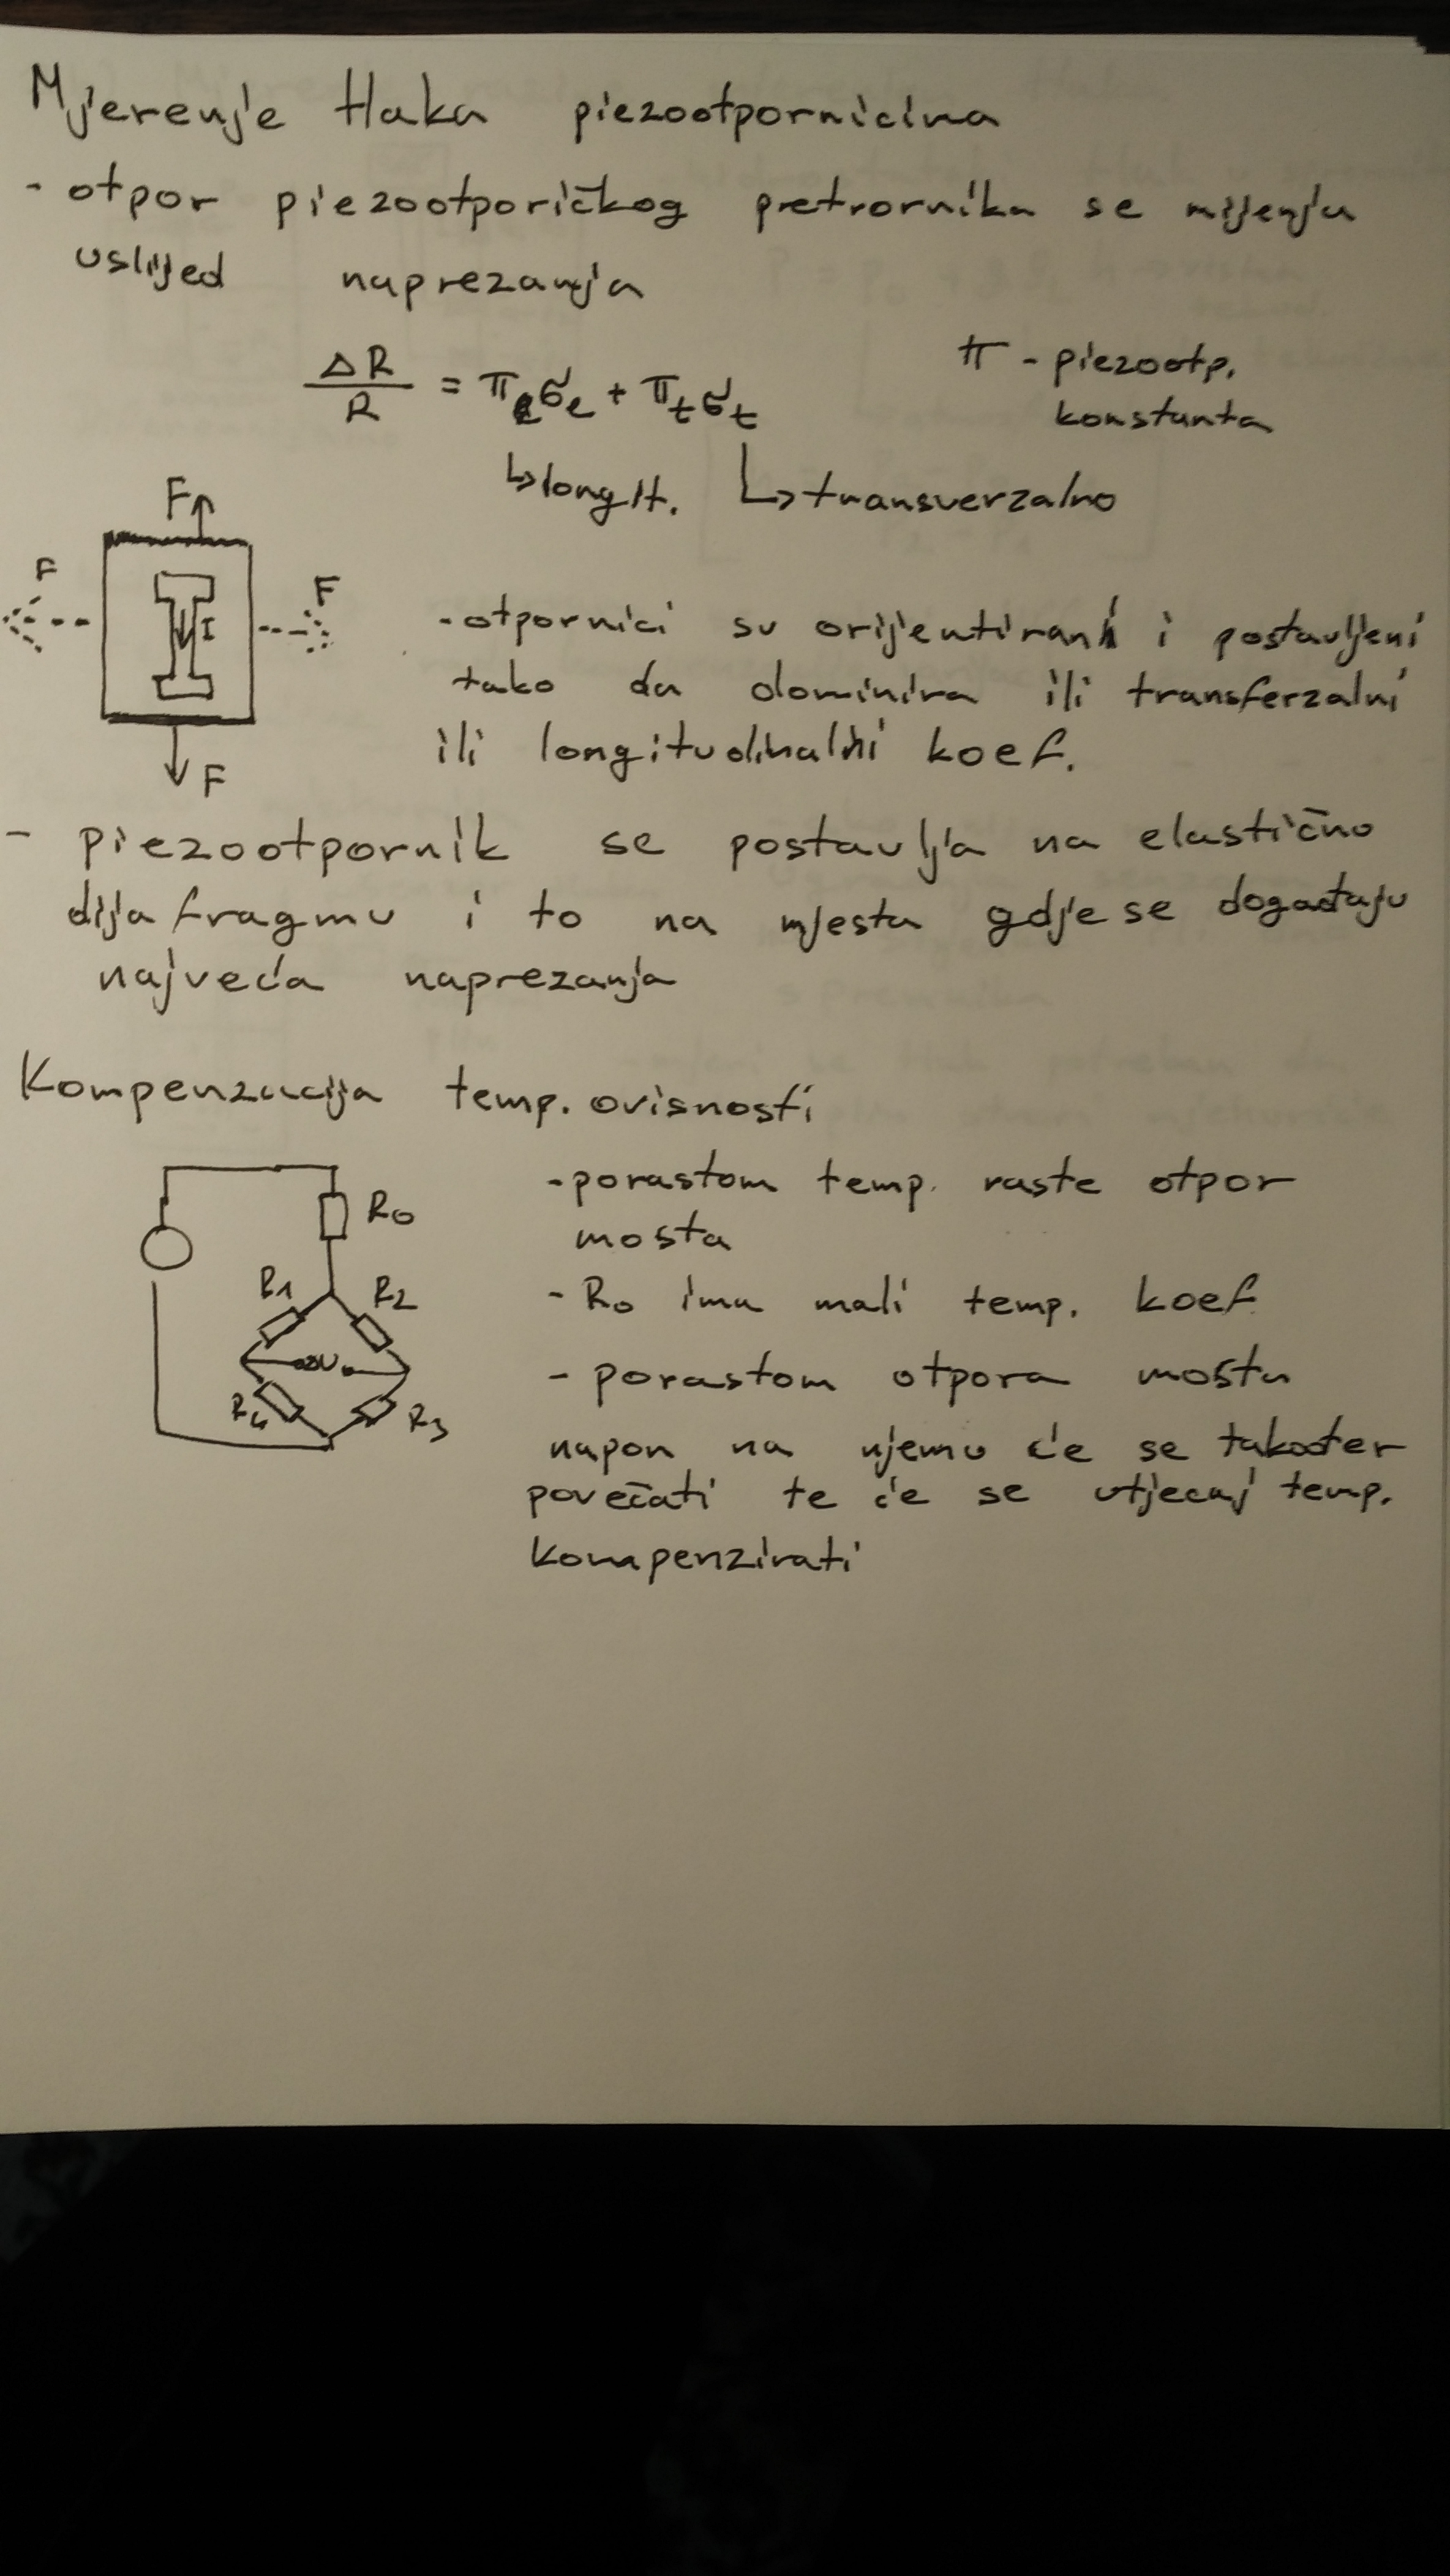 Mjerenje tlaka piezootpornicima
- otpor piezootporičkog pretvornika se mijenja
uslijed naprezanja
ΔR/R = π_l σ_l + π_t σ_t
π - piezootp.
konstanta
↳ longit. ↳ transverzalno
F
F
F
I
F
- otpornici su orijentirani i postavljeni
tako da dominira ili transferzalni
ili longitudinalni koef.
- piezootpornik se postavlja na elastično
dijafragmu i to na mjesta gdje se događaju
najveća naprezanja
Kompenzacija temp. ovisnosti
R0
R1 R2
R4 R3
- porastom temp. raste otpor
mosta
- R0 ima mali temp. koef
- porastom otpora mosta
napon na njemu će se također
povečati te će se utjecaj temp.
kompenzirati